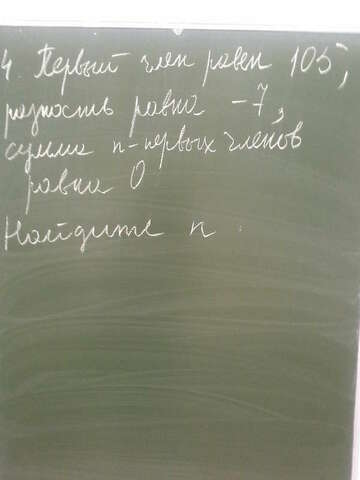 4. Первый член равен 105,
разность равна -7,
сумма n-первых членов
равна 0
Найдите n.